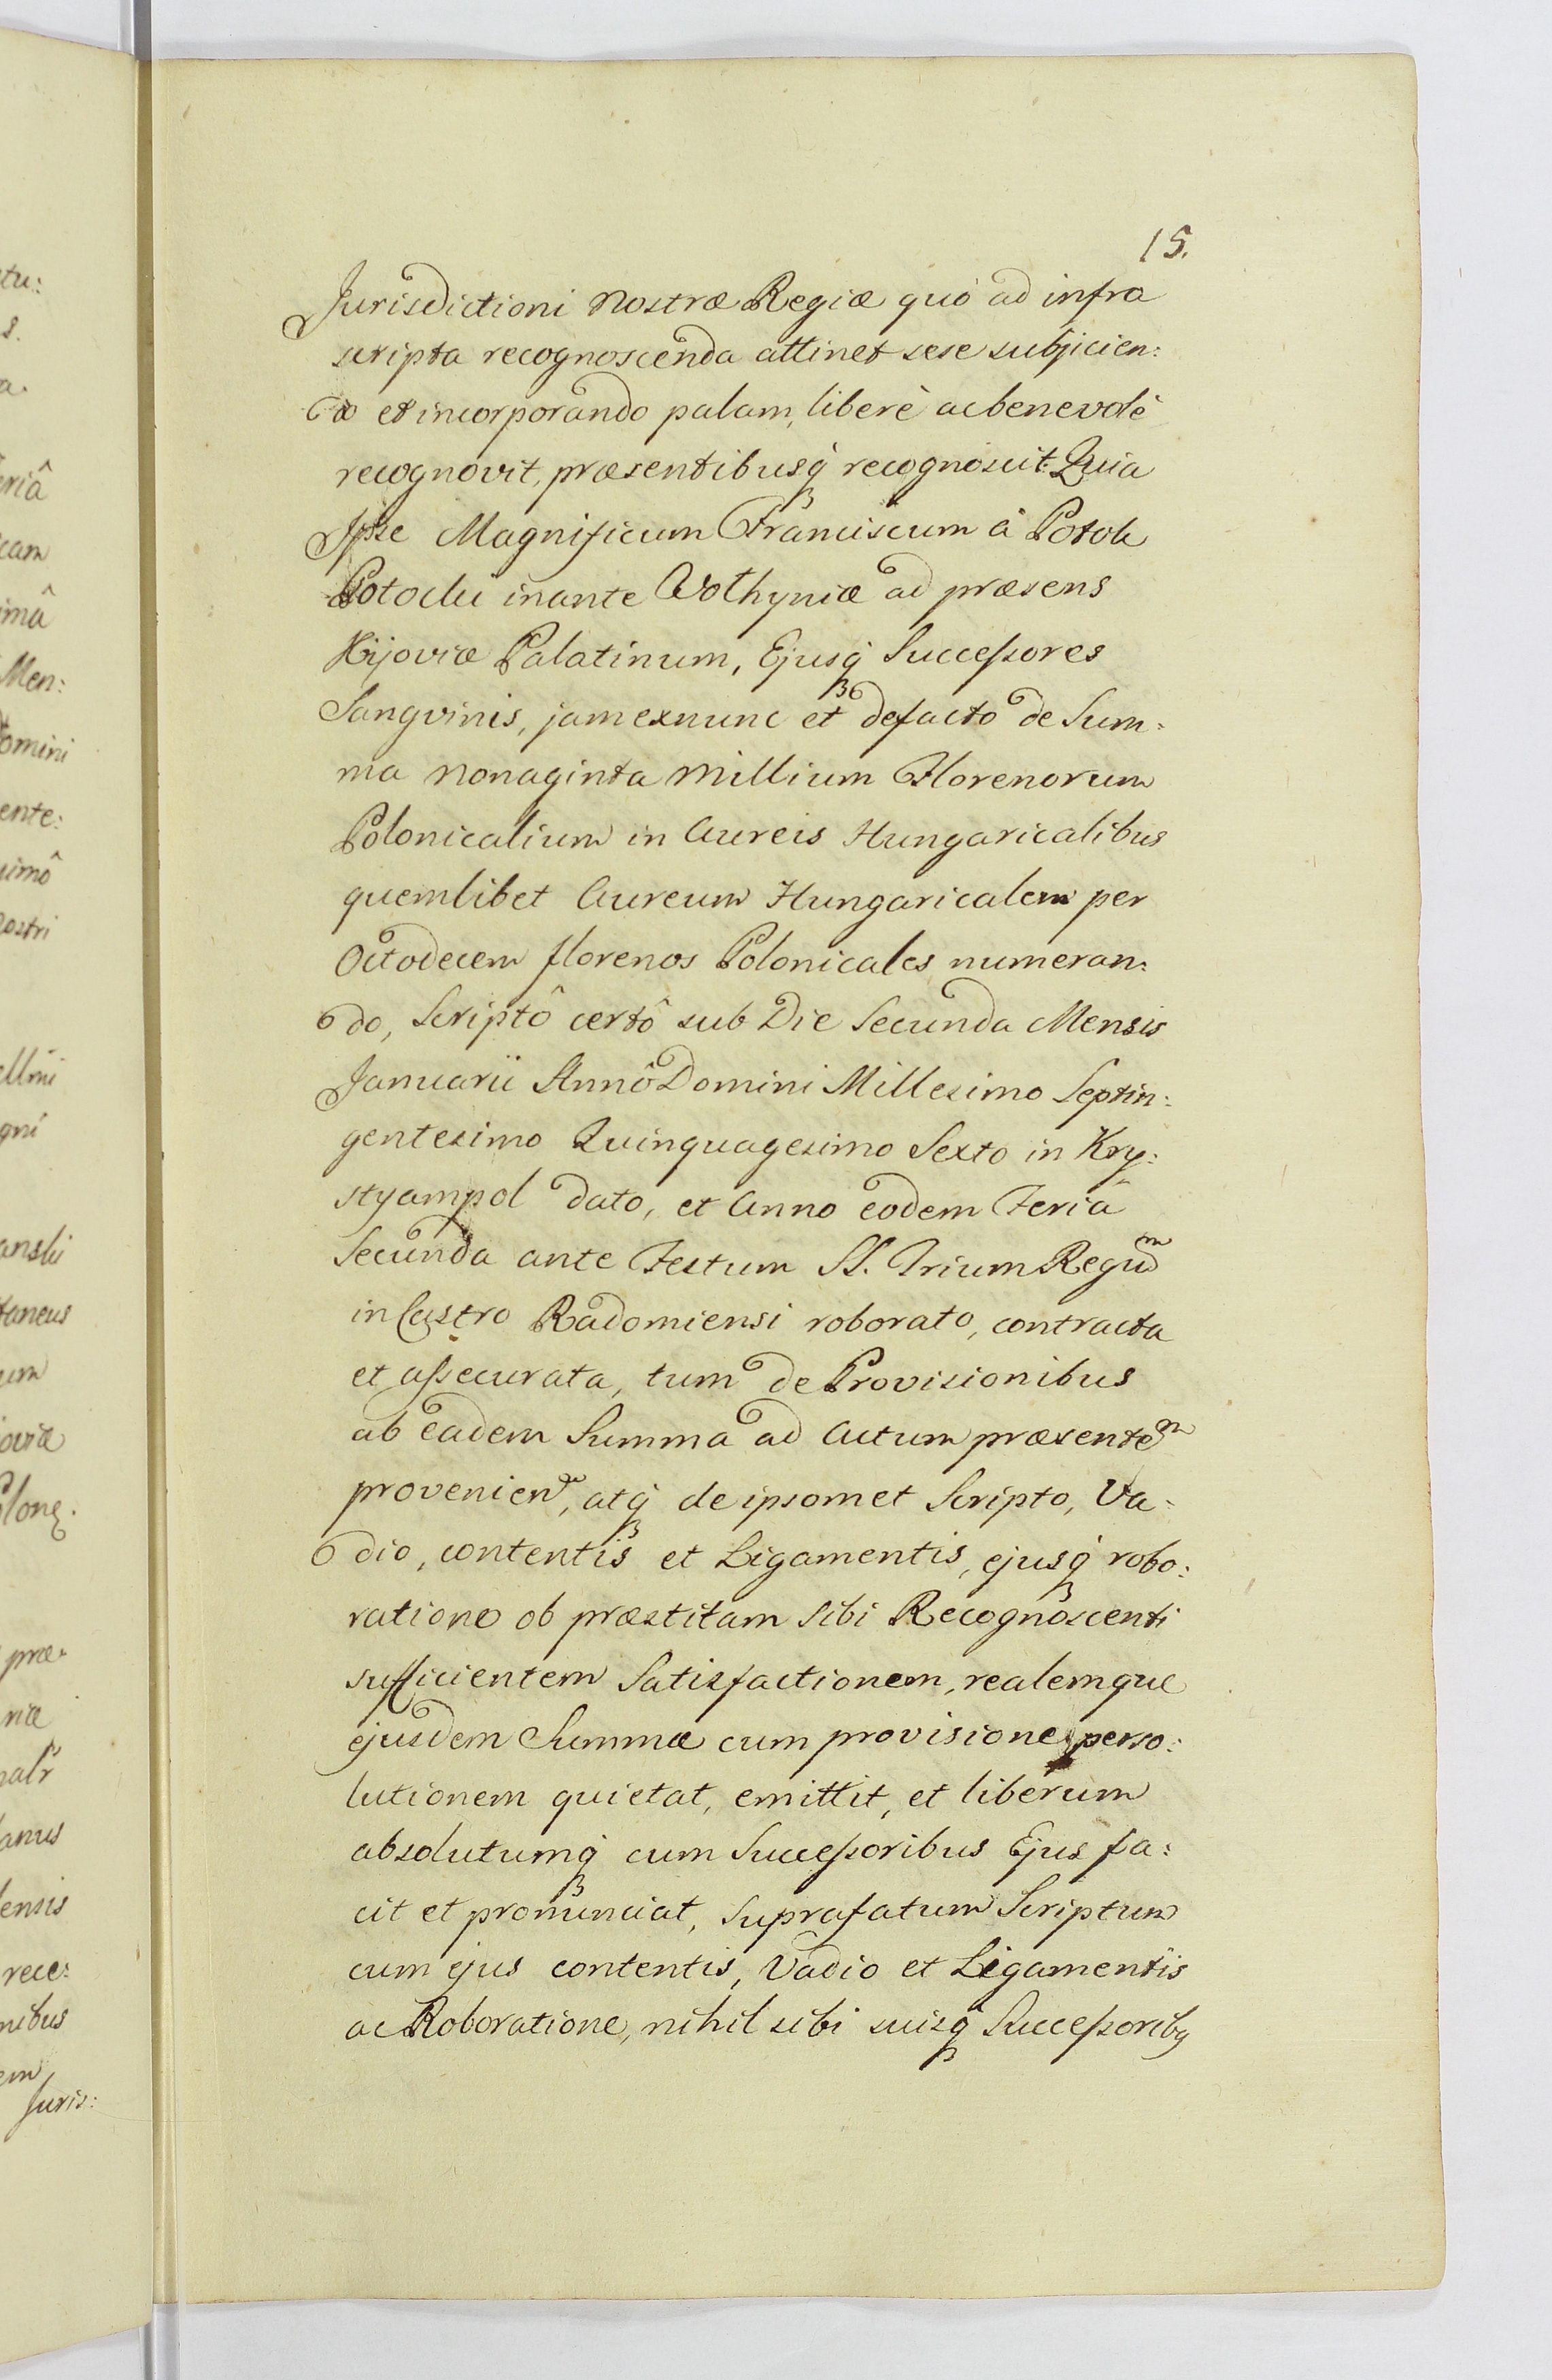 15.
Jurisdictioni nostræ Regiæ quò ad infra
scripta recognoscenda attinet sese subjicien:
do et incorporando palam, liberè ac benevolè
recognovit, præsentibusq₃ recognoscit: Quia
Ipse Magnificum Franciscum à Potok
Potocki inante Volhyniæ ad præsens
Kijoviæ Palatinum, Ejusq₃ Successores
Sangvinis, jam exnunc et defacto de Sum:
ma Nonaginta Millium Florenorum
Polonicalium in Aureis Hungaricalibus
quemlibet Aureum Hungaricalem per
Octodecem florenos Polonicales numeran:
do, Scriptô certô sub Die Secunda Mensis
Januarii Annô Domini Millesimo Septin:
gentesimo Quinquagesimo Sexto in Kry:
styampol dato, et Anno eodem Feriâ
Secunda ante Festum SS. Trium Regum
in Castro Radomiensi roborato, contracta
et assecurata, tum de Provisionibus
ab eadem Summa ad Actum præsentem
provenien, atq₃ de ipsomet Scripto, Va:
dio, contentiis et Ligamentis, ejusq₃ robo:
ratione ob præstitam sibi Recognoscenti
sufficientem Satisfactionem, realemque
ejusdem Summæ cum provisione perso:
lutionem quietat, emittit, et liberum
absolutumq₃ cum Successoribus Ejus fa:
cit et pronunciat, Suprafatum Scriptum
cum ejus contentis, Vadio et Ligamentiis
ac Roboratione, nihil sibi suisq₃ Successoribq
tu:
s.
a.
riâ
cam
imâ
Men:
omini
ente:
simô
nostri
ellmi
gni
anski
taneus
um
oviæ
præ
anus
ensis
rece:
nibus
em
Juris: